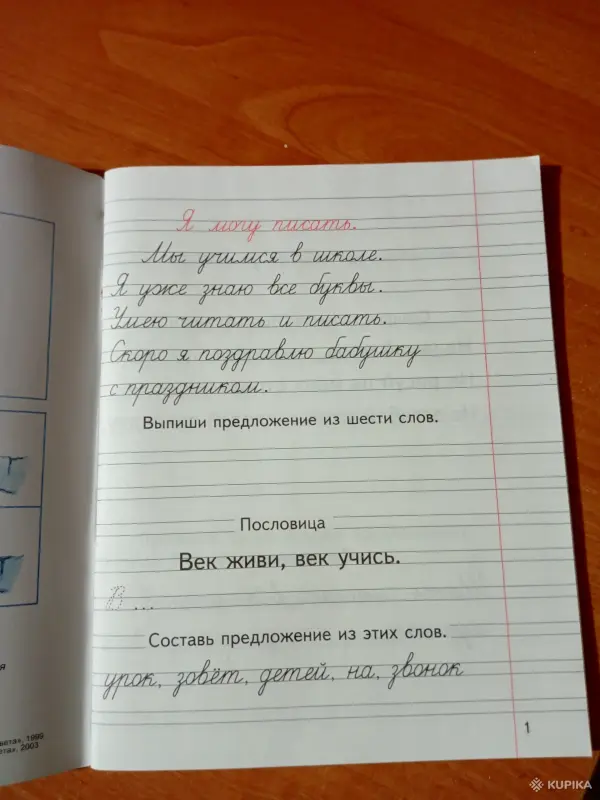 Я могу писать.
Мы учимся в школе.
Я уже знаю все буквы.
Умею читать и писать.
Скоро я поздравлю бабушку
с праздником.
Выпиши предложение из шести слов.
Пословица
Век живи, век учись.
В ...
Составь предложение из этих слов.
урок, зовёт, детей, на, звонок
я
вета», 1999
ета», 2003
1
KUPIKA